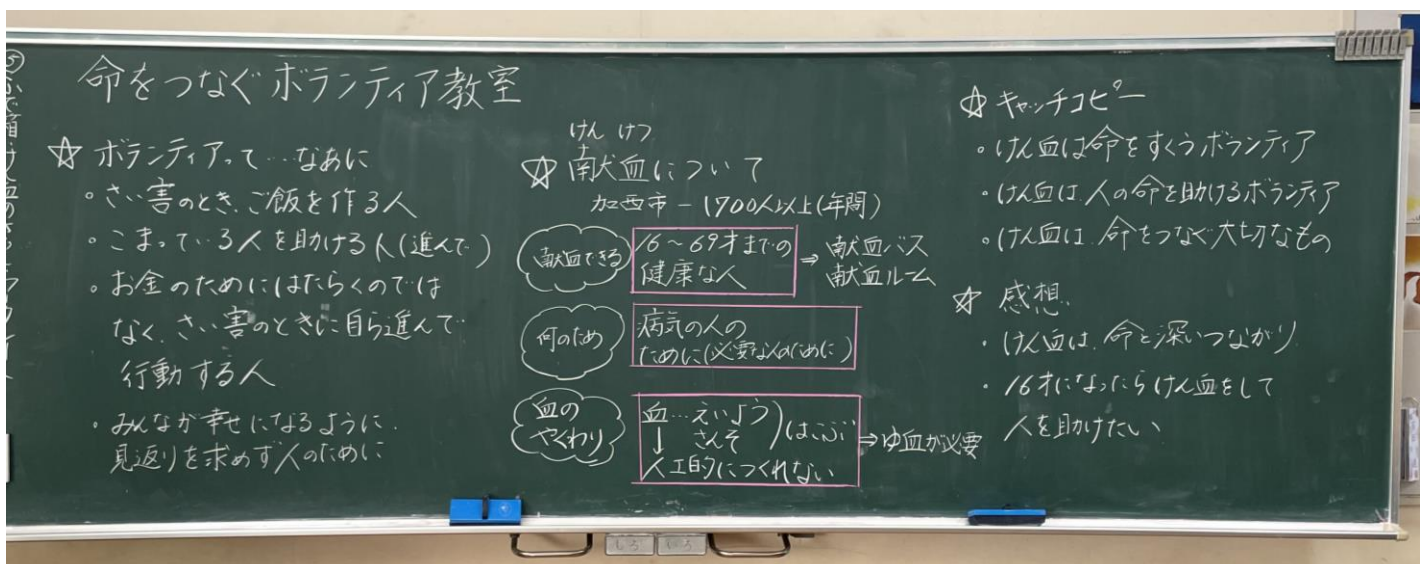 命をつなぐボランティア教室
☆ ボランティアって…なあに
・さい害のとき、ご飯を作る人
・こまっている人を助ける人(進んで)
・お金のためにはたらくのでは
なく、さい害のときに自ら進んで
行動する人
・みんなが幸せになるように、
見返りを求めず人のために
けん けつ
☆ 献血について
加西市 − 1700人以上(年間)
献血できる
16〜69才までの
健康な人
⇒ 献血バス
献血ルーム
何のため
病気の人の
ために(必要な人のために)
血の
やくわり
血…えいよう
↓ さんそ ) はこぶ
人工的につくれない
⇒ゆ血が必要
☆ キャッチコピー
・けん血は命をすくうボランティア
・けん血は、人の命を助けるボランティア
・けん血は、命をつなぐ大切なもの
☆ 感想、
・けん血は、命と深いつながり
・16才になったらけん血をして
人を助けたい